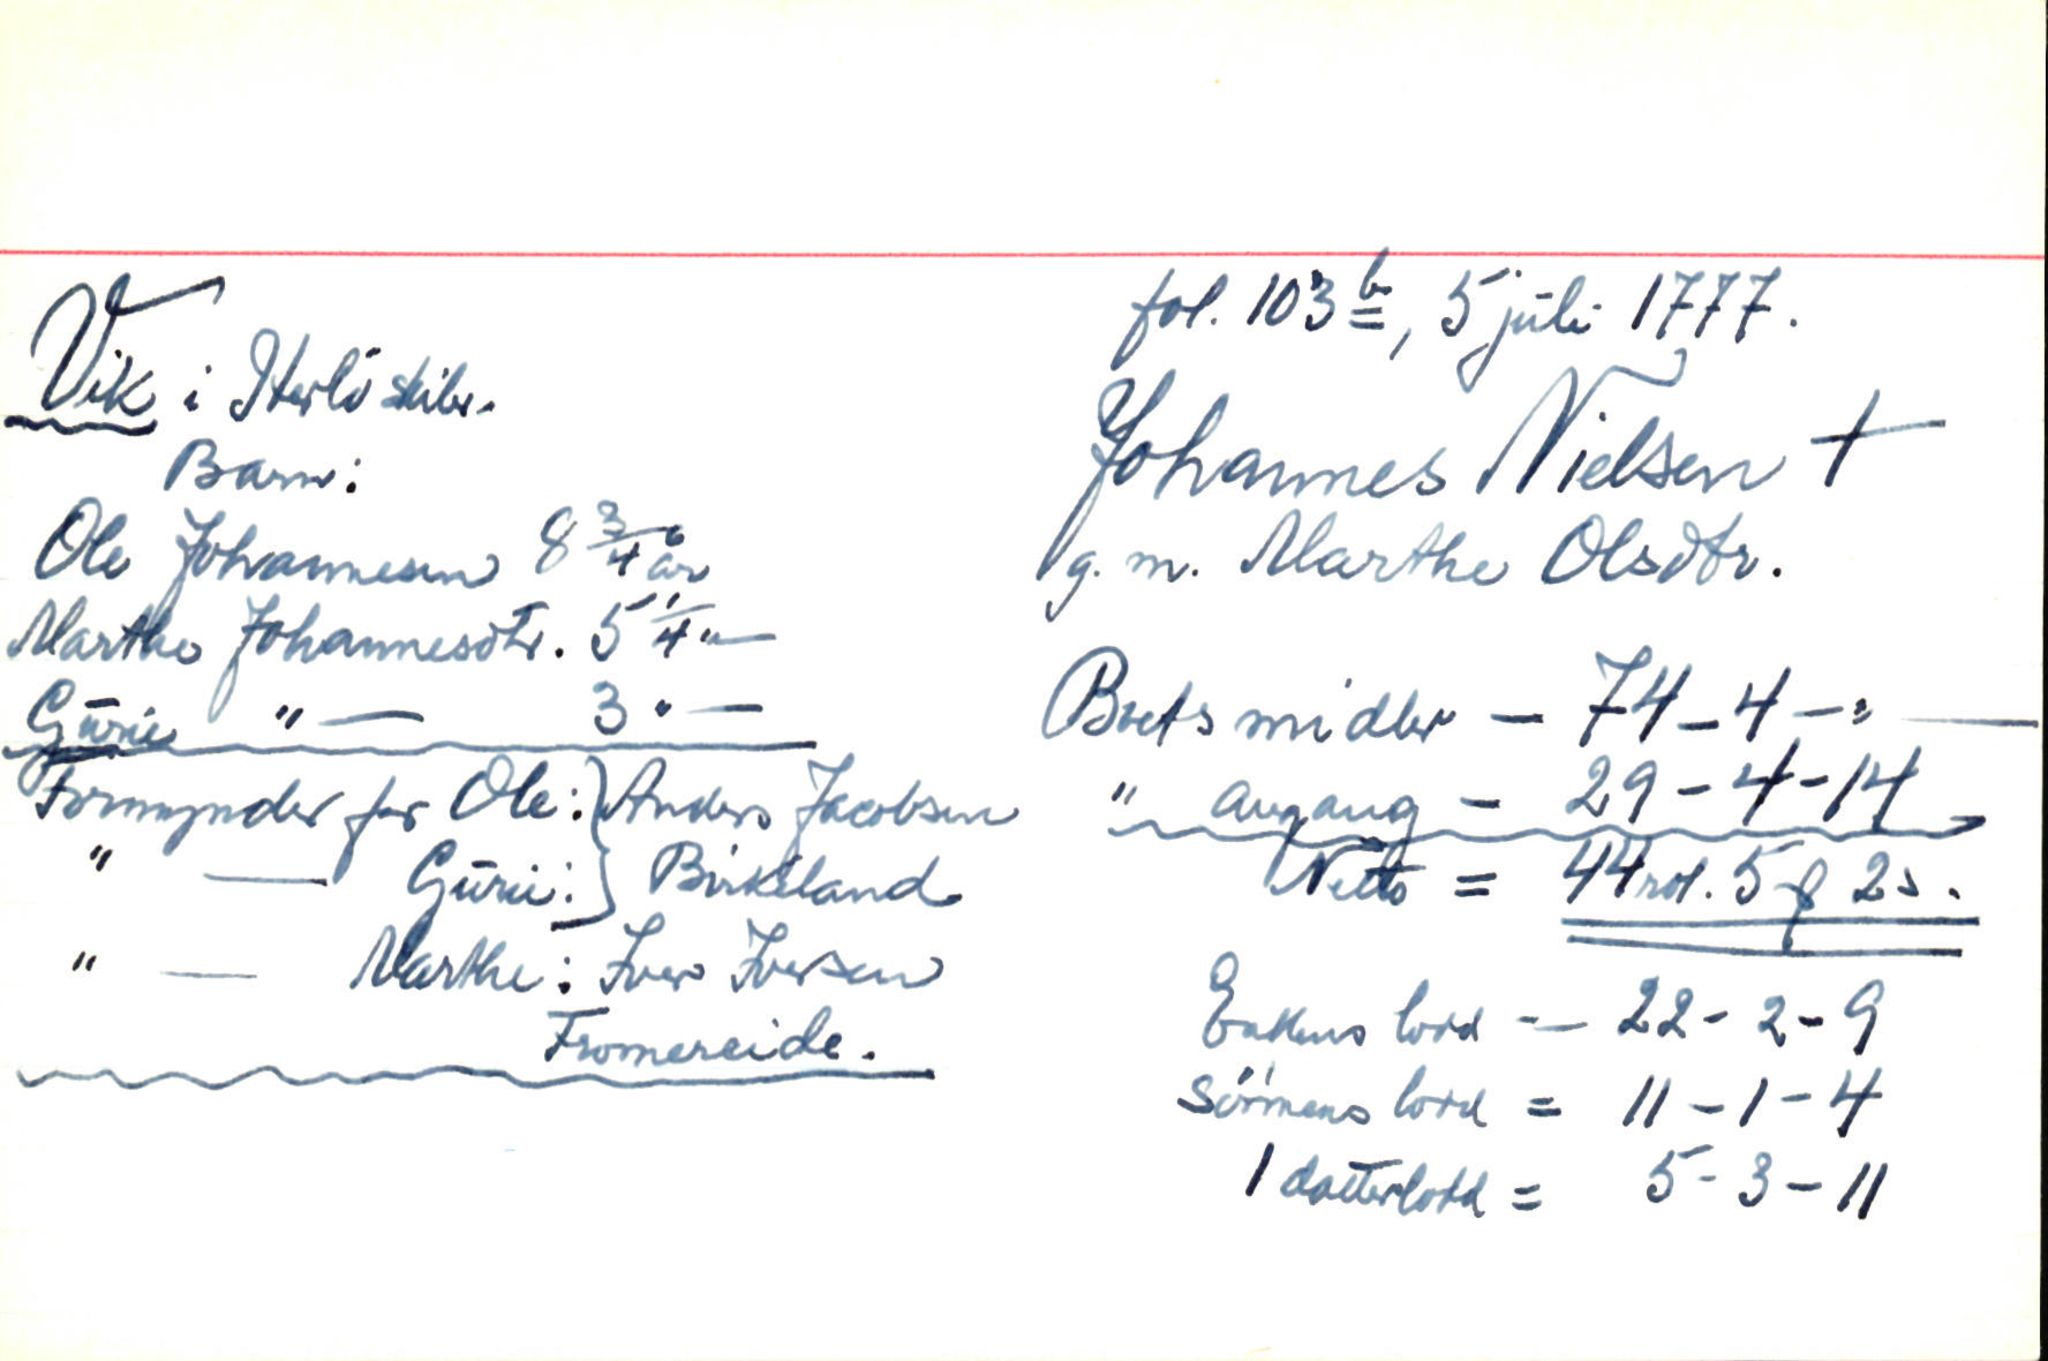 Vik i Herlö skibr.
Barn:
Ole Johannesen 8 3/4 år
Marthe Johannesdtr. 5 1/4 " —
Gūrie " — 3 " —
Formynder for Ole: } Anders Jacobsen
" — Gūrie: } Birkeland
" — Marthe: Iver Iversen
Fromereide.
fol. 103 b, 5 jūli 1777.
Johannes Nielsen †
g. m. Marthe Olsdtr.
Boets midler — 74 - 4 - " —
" avgang — 29 - 4 - 14
Netto = 44 rdl. 5 ƒ 2 s.
Enkens lodd — 22 - 2 - 9
Sönnens lodd = 11 - 1 - 4
1 datterlodd = 5 - 3 - 11